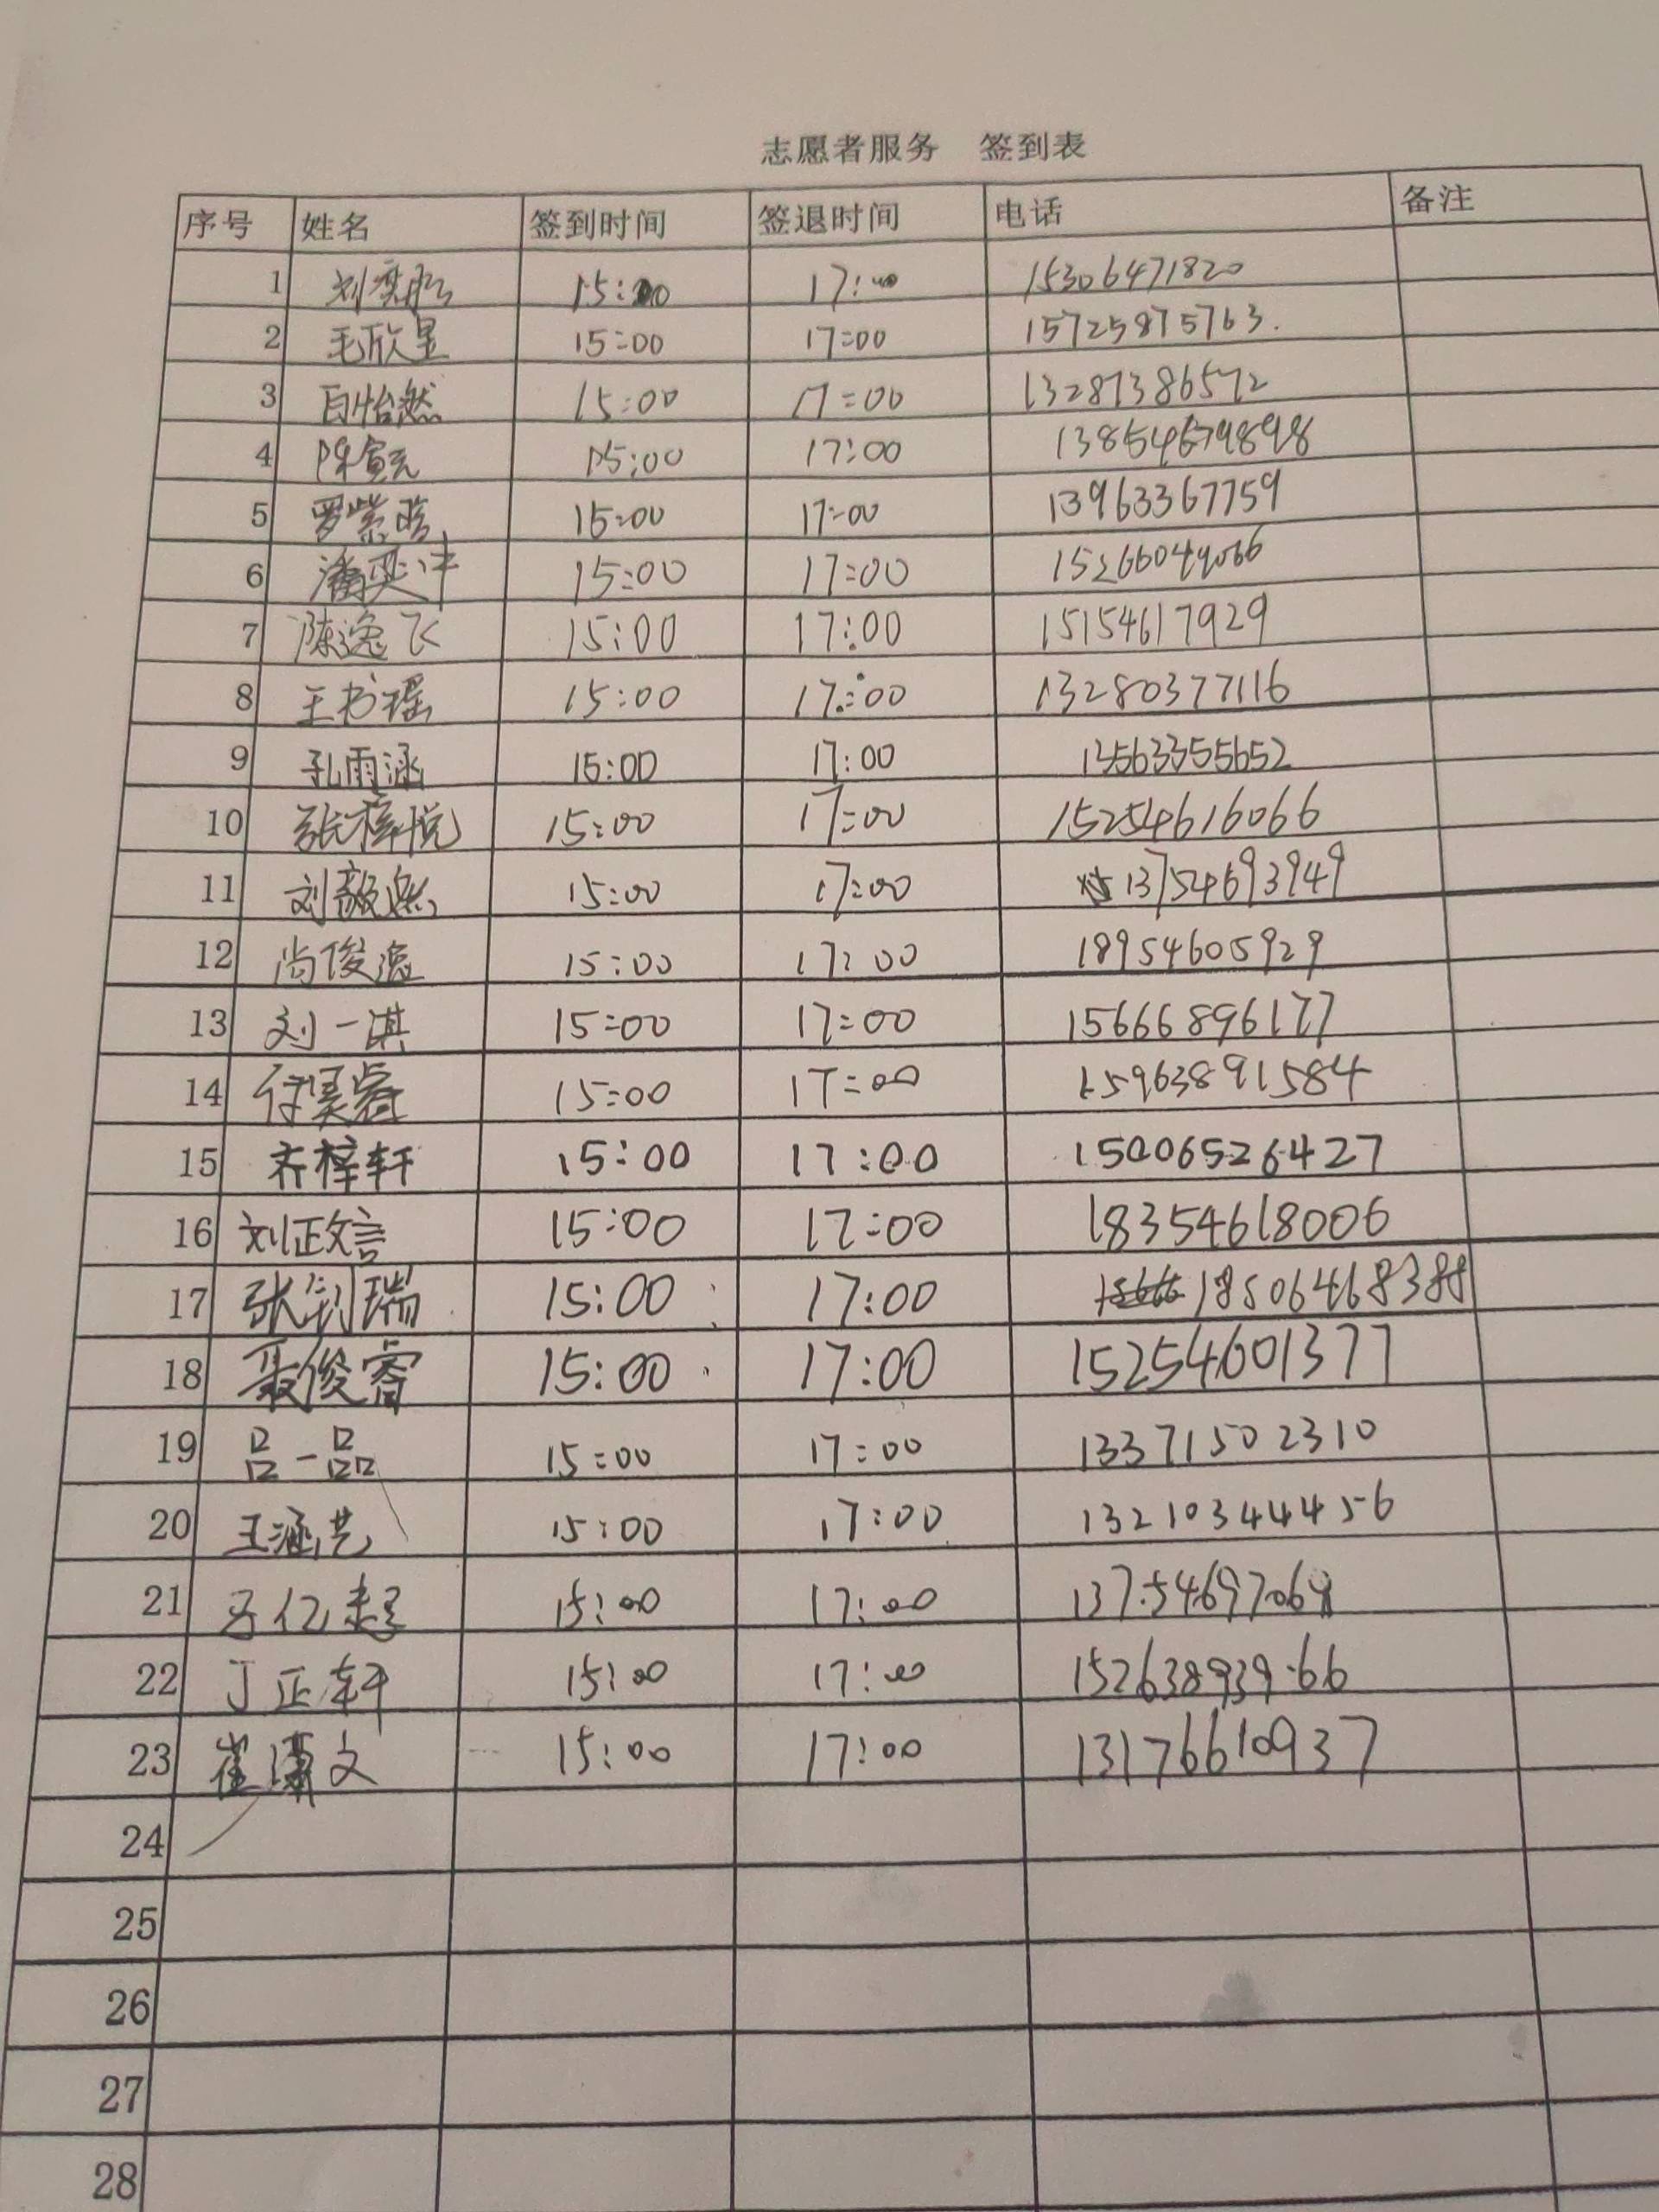 志愿者服务 签到表
序号 姓名 签到时间 签退时间 电话 备注
1 15:00 17:00 15306471820
2 毛欣昱 15:00 17:00 15725875763.
3 白怡然 15:00 17:00 13287386572
4 15:00 17:00
5 罗紫晗 15:00 17:00 13963367759
6 潘奕冲 15:00 17:00
7 陈逸飞 15:00 17:00 15154617929
8 王书瑶 15:00 17:00 13280377116
9 孔雨涵 15:00 17:00 13563355652
10 张梓悦 15:00 17:00 15254616066
11 刘毅然 15:00 17:00 13754693949
12 尚俊逸 15:00 17:00 18954605929
13 刘一淇 15:00 17:00 15666896177
14 付昊睿 15:00 17:00 15963891584
15 齐梓轩 15:00 17:00 15006526427
16 刘政言 15:00 17:00 18354618006
17 张钊瑞 15:00 17:00 18506468388
18 聂俊睿 15:00 17:00 15254601377
19 吕一品 15:00 17:00 13371502310
20 王涵艺 15:00 17:00 13210344456
21 15:00 17:00
22 丁正轩 15:00 17:00 15263893966
23 崔潇文 15:00 17:00 13176610937
24
25
26
27
28